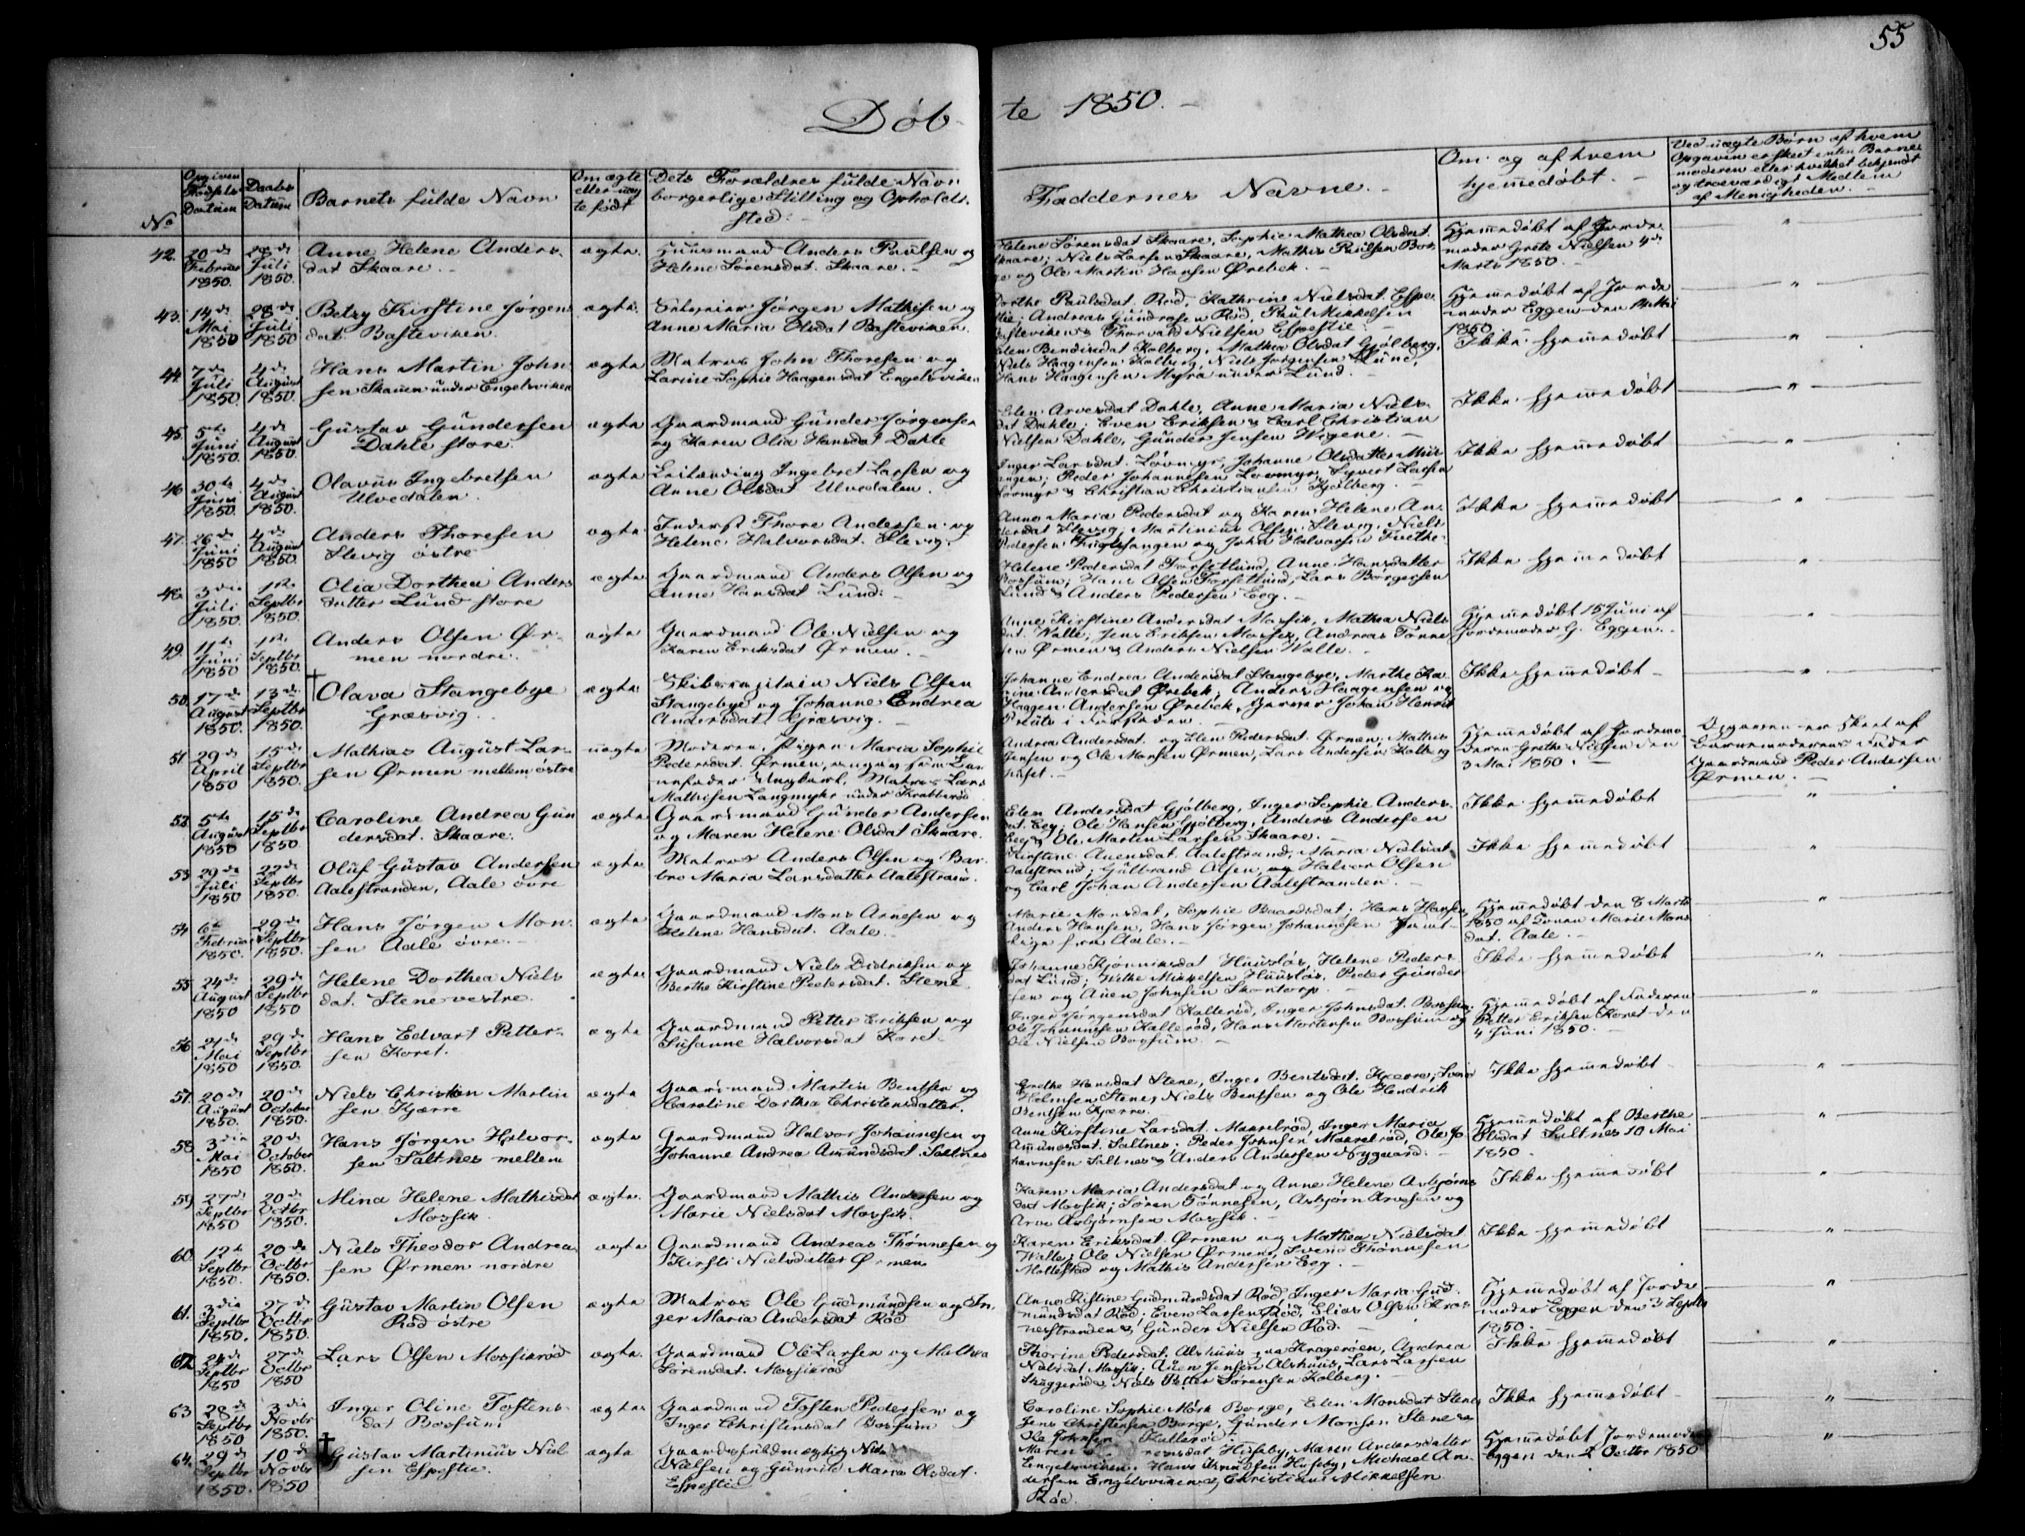 55
Døb-
te 1850.
No
Opgiven Fødsels Datum
Daabs Datum
Barnets fulde Navn
Om ægte eller uægte født
Dets Forældres fulde Navn borgerlige Stilling og Opholdssted.
Faddernes Navne.
Om og af hvem hjemmedøbt.
Ved uægte Børn af hvem Opgaven er skeet enten Barnemoderen eller hvilket bekjendt og troværdigt Medlem af Menigheden.
42. 20de Februar 1850. 28de Juli 1850. Anne Helene Anders-
dat Skaare. ægte. Huusmand Anders Paulsen og
Helene Sørensdat. Skaare.
Helene Sørensdat Skaare, Sophie Mathea Olsdat.
Skaare; Niels Larsen Skaare, Mathis Paulsen
og Ole Martin Hansen Ørebek.
Hjemmedøbt af Jorde-
moder Grethe Nielsen 4de
Marts 1850.
43. 14de Mai 1850 28de Juli 1850 Betzy Kirstine Jørgens
dat Basteviken. ægte. Selveier Jørgen Mathisen og
Anne Maria Olsdat Basteviken.
Dorthe Paulsdat. Rød, Kathrine Nielsdat. Espe-
stie; Andreas Gundrosen Rød, Paul Mikkelsen
Basteviken & Thorvald Nielsen Espestie.
Hjemmedøbt af Jorde
moder Eggen den
1850
44. 7de Juli 1850. 4de August 1850. Hans Martin John-
sen Skauen under Engelsviken ægte Matros John Thoresen og
Larine Sophie Haagensdat Engelsviken
Elen Bendixdat Kolberg, Mathea Olsdat Gjølberg,
Niels Haagensen Kolberg, Niels Jørgensen Lund,
Hans Haagensen Myra under Lund.
Ikke hjemmedøbt
45. 5te Juni 1850. 4de August 1850. Gustav Gundersen
Dahle store. ægte Gaardmand Gunder Jørgensen
og Karen Olia Hansdat Dahle
Elen Arvesdat Dahle, Anne Maria Niels-
dat Dahle; Even Eriksen & Carl Christian
Nielsen Dahle, Gunder Jensen Wigene.
Ikke hjemmedøbt
46 30te Juni 1850. 4de August 1850. Olavus Ingebretsen
Ulvedalen. ægte Leilænding Ingebret Larsen og
Anne Olsdat Ulvedalen.
Inger Larsdat. Løvmyr, Johanne Olsdatter
Peder Johannesen Løvmyr, Syvert Larsen
Løvmyr & Christian Christiansen Gjølberg.
Ikke hjemmedøbt
47. 26de Juni 1850 4de August 1850. Anders Thoresen
Slevig østre ægte. Inderst Thore Andersen og
Helene Halvorsdat. Slevig.
Anne Maria Pedersdat og Karen Helene An-
dersdat Slevig; Martinius Olsen Slevig, Niels
Pedersen Fuglesangen og John Halvorsen
Ikke hjemmedøbt
48. 3die Juli 1850. 1ste Septbr 1850. Olia Dorthea Anders
datter Lund store ægte Gaardmand Anders Olsen og
Anne Hansdat Lund.
Helene Pedersdat Torsetlund, Anne Hansdatter
Bossum; Hans Olsen Torsetlund, Lars Borgersen
Lund & Anders Pedersen Eeg.
Ikke hjemmedøbt
49. 11te Juni 1850 1ste Septbr 1850. Anders Olsen Ør-
men nordre. ægte Gaardmand Ole Nielsen og
Karen Eriksdat Ørmen.
Anne Kirstine Andersdat Mossik, Mathea Niels
dat. Walle; Jens Eriksen Mosses, Andreas Tønne
sen Ørmen & Anders Nielsen Walle.
Hjemmedøbt 15 Juni af
Jordemoder G. Eggen.
50. 17de August 1850. 13de Septbr 1850. † Olava Stangebye
Græsvig. ægte Skibscapitain Niels Olsen
Stangebye og Johanne Endrea
Andersdat. Græsvig.
Johanne Endrea Andersdat Stangebye, Marthe Ka-
rine Andersdat Ørebek; Anders Haagensen og
Haagen Andersen Ørebek, Johan Henrik
Ikke hjemmedøbt
51 29de April 1850 15de Septbr 1850. Mathias August Lar-
sen Ørmen mellem østre uægte Moderen: Pigen Maria Sophie
Pedersdat. Ørmen, angav som Bar
nefader: Ungkarl, Matros Lars
Mathisen Langmyhr under Krabberød
Andrea Andersdat. og Elen Pedersdat. Ørmen; Mathis
Jensen og Ole Monsen Ørmen, Lars Andersen Kolberg
huset.
Hjemmedøbt af Jordemo-
deren Grethe Nielsen den
3 Mai 1850.
Opgaven er skeet af
Barnemoderens Fader
Gaardmand Peder Andersen
Ørmen.
52. 5te August 1850 15de Septbr 1850. Caroline Andrea Gun
dersdat. Skaare. ægte Gaardmand Gunder Andersen
og Maren Helene Olsdat Skaare.
Elen Andersdat Gjølberg, Inger Sophie Anders-
dat. Eeg; Ole Hansen Gjølberg, Anders Andersen
Eeg & Ole Martin Larsen Skaare.
Ikke hjemmedøbt
53 29de Juli 1850 22de Septbr 1850. Oluf Gustav Andersen
Aalestranden, Aale øvre ægte Matros Anders Olsen og Bar-
bro Maria Larsdatter Aalestrand.
Kirstine Auensdat. Aalestrand, Maria Nielsdat
Aalestrand; Gulbrand Olsen, og Halvor Olsen
og Carl Johan Andersen Aalestranden.
Ikke hjemmedøbt
54 6te Februar 1850. 29de Septbr 1850. Hans Jørgen Mon-
sen Aale øvre. ægte Gaardmand Mons Arnesen og
Helene Hansdat. Aale.
Marie Monsdat, Sophie Baardsdat. Hans Hansen
Anders Hansen, Hans Jørgen Johannesen samt-
lige fra Aale.
Hjemmedøbt den 8 Marts
1850 af Konen Marie Mons
dat. Aale.
55. 24de August 1850 29de Septbr 1850 Helene Dorthea Niels
dat. Stene vestre. ægte Gaardmand Niels Didriksen og
Berthe Kirstine Pedersdat. Stene
Johanne Kjønniksdat Huusløs, Helene Peders
dat Lund; Wilhe Mikkelsen Huusløs, Peder Gunder
sen og Auen Johnsen Skontorp.
Ikke hjemmedøbt
56 21de Mai 1850 29de Septbr 1850 Hans Edvart Petter-
sen Koret. ægte Gaardmand Petter Eriksen og
Susanne Halvorsdat Koret.
Inger Jørgensdat Kallerød, Inger Johnsdat. Bossum,
Ole Johannesen Kallerød, Hans Mortensen Bossum og
Ole Nielsen Bossum.
Hjemmedøbt af Faderen
Petter Eriksen Koret den
4 Juni 1850.
57. 20de August 1850. 20de October 1850. Niels Christian Martin
sen Kjærre ægte Gaardmand Martin Bentsen og
Caroline Dorthea Christensdatter.
Grethe Hansdat Stene, Inger Bentsdat. Kjærre; Svend
Holmsen Stene, Niels Bentsen og Ole Hendrik
Bentsen Kjærre.
Ikke hjemmedøbt
58. 3die Mai 1850 20de October 1850. Hans Jørgen Halvor-
sen Saltnes mellem ægte Gaardmand Halvor Johannesen og
Johanne Andrea Amundsdat. Saltnes
Anne Kirstine Larsdat. Maxelrød, Inger Maria
Amundsdat. Saltnes; Peder Johnsen Maxelrød, Ole Jo
hannesen Saltnes & Anders Andersen Nygaard.
Hjemmedøbt af Berthe
Olsdat Saltnes 10 Mai
1850.
59. 27de Septbr 1850 20de Octbr 1850. Mina Helene Mathisdat
Mossik. ægte. Gaardmand Mathis Andersen og
Marie Nielsdat Mossik.
Karen Maria Andersdat og Anne Helene Asbjørns
dat Mossik; Søren Tønnesen, Asbjørn Arvesen og
Arve Asbjørnsen Mossik.
Ikke hjemmedøbt
60. 12te Septbr 1850. 20de Octbr 1850. Niels Theodor Andrea
sen Ørmen nordre ægte Gaardmand Andreas Thønnesen og
Kirsti Nielsdatter Ørmen
Karen Eriksdat. Ørmen og Mathea Nielsdat
Walle; Ole Nielsen Ørmen, Svend Thønnesen
Mollestad og Mathis Andersen Eeg.
Ikke hjemmedøbt
61. 3die Septbr 1850. 27de Octbr 1850. Gustav Martin Olsen
Rød østre ægte Matros Ole Gudmundsen og In-
ger Maria Andersdat Rød
Anne Kistine Gudmundsdat Rød, Inger Maria Gud-
mundsdat Rød; Even Larsen Rød, Elias Olsen
& Gunder Nielsen Rød.
Hjemmedøbt af Jorde
moder Eggen den Septbr
1850.
62. 24de Septbr 1850 27de Octbr 1850 Lars Olsen Mossikrød ægte. Gaardmand Ole Larsen og Mathea
Sørensdat. Mossikrød
Thorine Pedersdat. Alshuus fra Kragerøen, Andrea
Nielsdat Mossik; Auen Jensen Alshuus, Lars Larsen
Skuggerød & Niels Petter Sørensen Kolberg.
Ikke hjemmedøbt
63 28de Septbr 1850 3die Novbr 1850. Inger Oline Tostens-
dat Bossum ægte Gaardmand Tosten Pedersen og
Inger Christensdat Bossum
Caroline Sophie Mørk Borge, Elen Monsdat Stene
Jens Christensen Borge, Gunder Monsen Stene &
Ole Johnsen Kallerød.
Ikke hjemmedøbt
64. 29de Septbr 1850. 10de Novbr 1850 † Gustav Martinius Niel
sen Espestie. ægte Gaardsfuldmægtig Niels
Nielsen og Gunnild Maria Olsdat.
Espestie
Maren Huseby, Maren Andersdatter
Engelsviken; Hans Knudsen Huseby, Michael An-
dersen Engelsviken & Christian Mikkelsen
Røe.
Hjemmedøbt Jordemoder
Eggen den 2 Octbr 1850